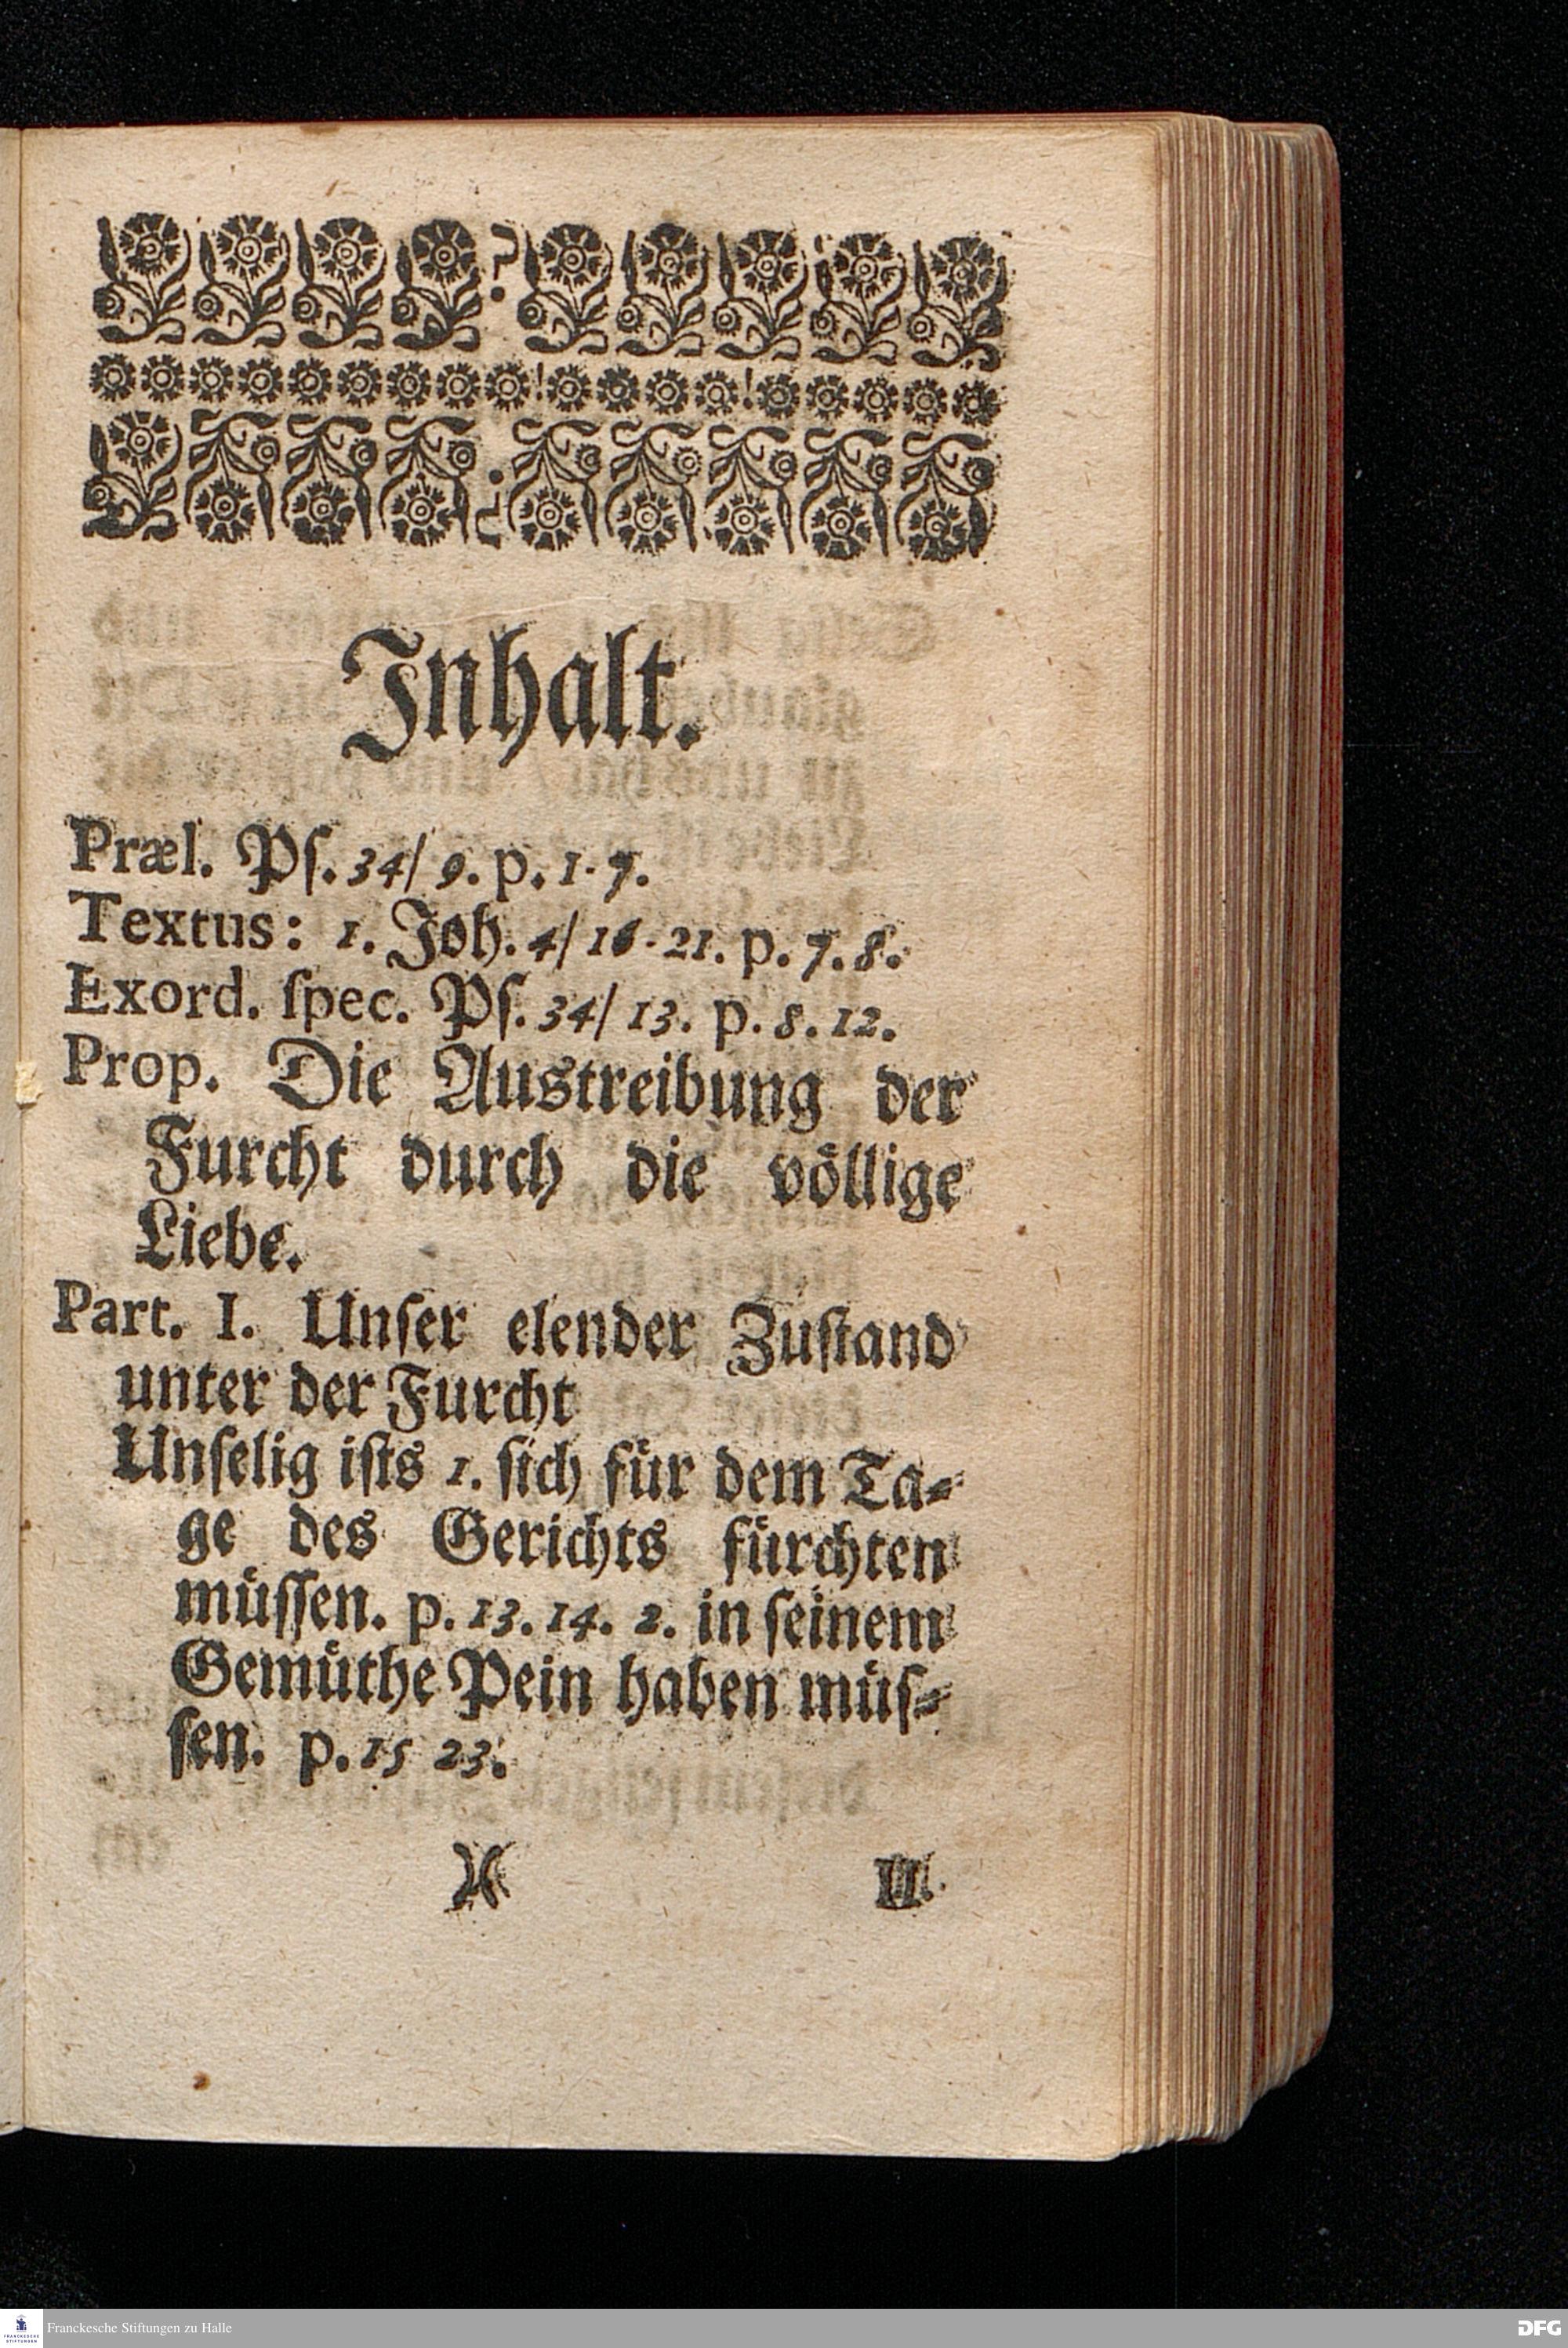 Inhalt.
Præl. Pſ. 34/ 9. p. 1-7.
Textus: 1. Joh. 4/ 16-21. p. 7. 8.
Exord. ſpec. Pſ. 34/ 13. p. 8. 12.
Prop. Die Austreibung der
Furcht durch die völlige
Liebe.
Part. I. Unſer elender Zuſtand
unter der Furcht
Unſelig iſts 1. ſich für dem Ta-
ge des Gerichts fürchten
müſſen. p. 13. 14. 2. in ſeinem
Gemüthe Pein haben müſ-
ſen. p. 15 23.
II.
Franckesche Stiftungen zu Halle
FRANCKESCHE
STIFTUNGEN
DFG